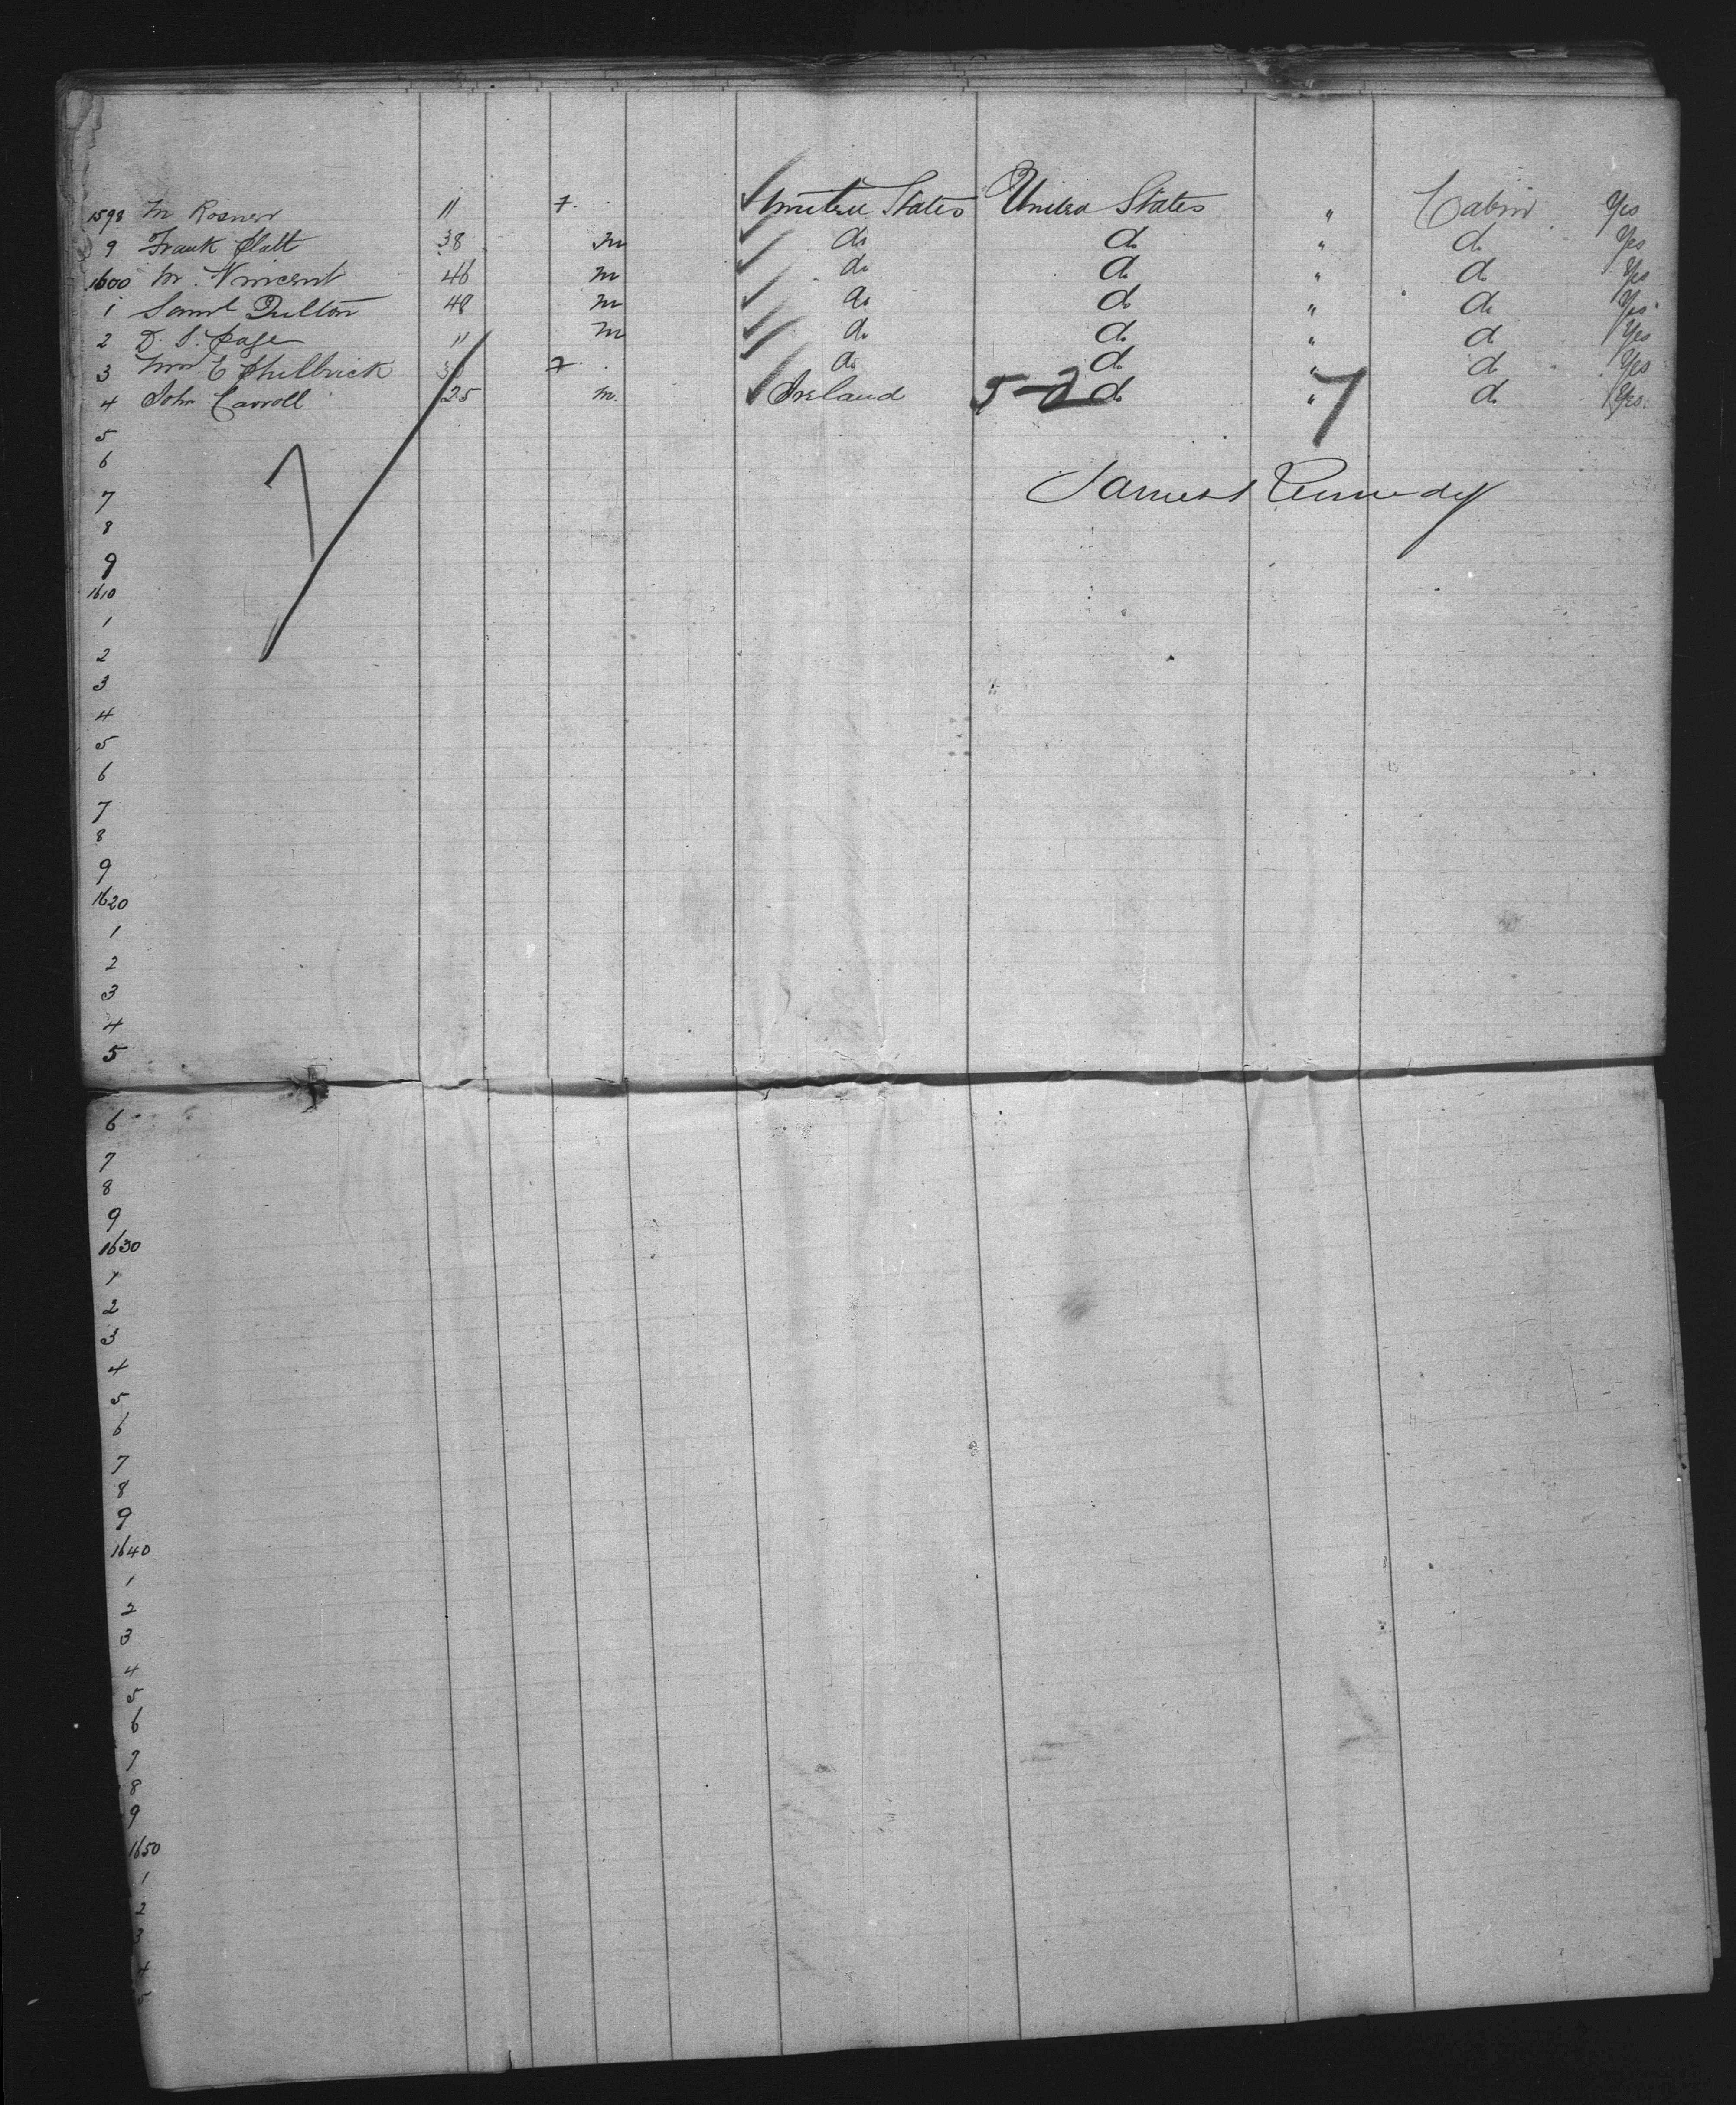 1598 M Rosner 11 F. United States United States " Cabin Yes
9 Frank Platt 38 M do do " do Yes
1600 M. Vincent 46 M do do " do Yes
1 Saml Dulton 48 M do do " do Yes
2 D. S. Page 11 M do do " do Yes
3 E Philbrick F do do " do Yes
4 John Carroll 25 M. Ireland 5-2 do " 7 do Yes
5
6
7 James Kennedy
8
9
1610
1
2
3
4
5
6
7
8
9
1620
1
2
3
4
5
6
7
8
9
1630
1
2
3
4
5
6
7
8
9
1640
1
2
3
4
5
6
7
8
9
1650
1
2
3
4
5